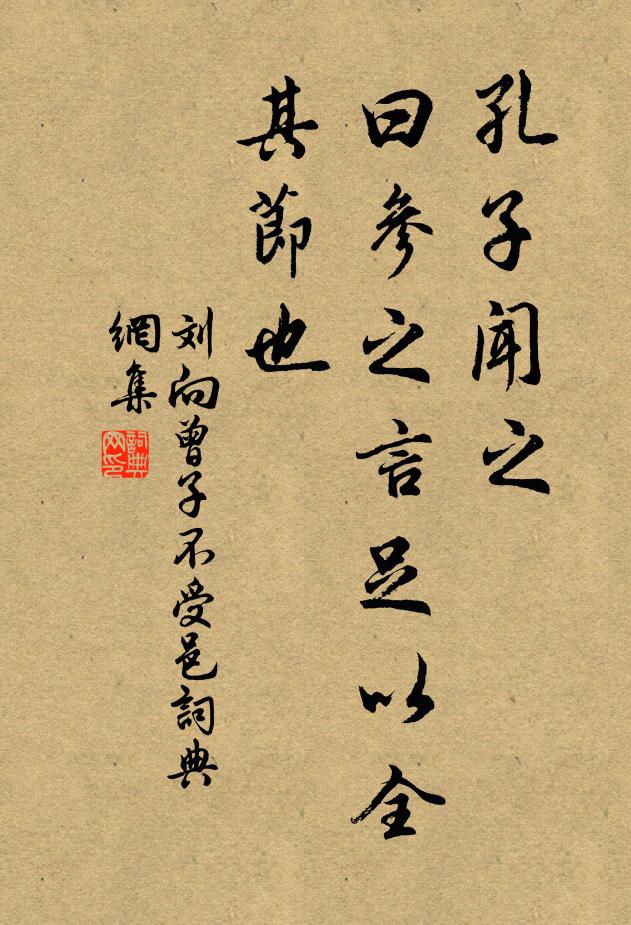 孔子聞之
曰參之言足以全
其節也
刘向曾子不受邑詞典
網集
詞典
网印